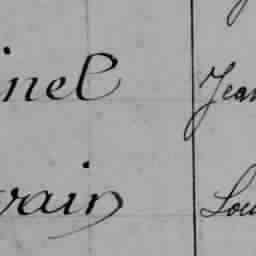 inel Jean
vrain Lou